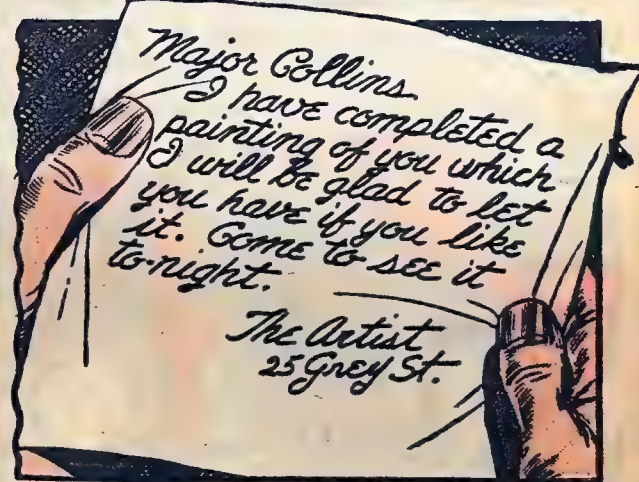 Major Collins
I have completed a
painting of you which
I will be glad to let
you have if you like
it. Come to see it
to-night.
The Artist
25 Grey St.